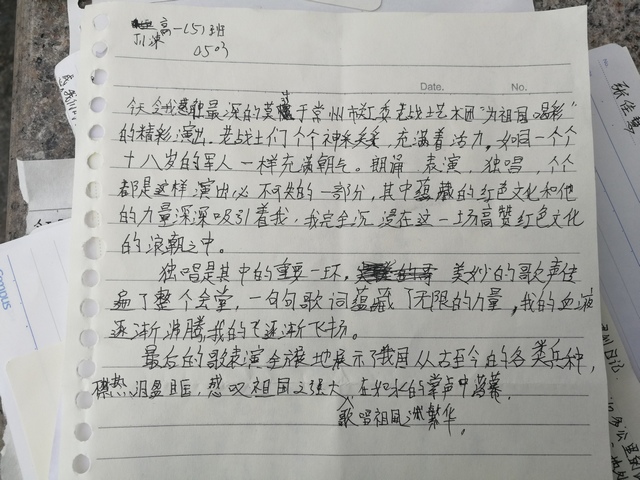 高一(5)班
0503
Date. No.
今天令我感触最深的莫过于常州市红委老战士艺术团"为祖国喝彩"
的精彩演出。老战士们个个神采奕奕,充满着活力,如同一个个
十八岁的军人一样充满朝气。朗诵,表演,独唱,个个
都是这样演出必不可失的一部分,其中蕴藏的红色文化和他
的力量深深吸引着我,我完全沉浸在这一场高赞红色文化
的浪朝之中。
独唱是其中的重要一环,美妙的歌声传
遍了整个会堂,一句句歌词蕴藏了无限的力量,我的血液
逐渐沸腾,我的心逐渐飞扬。
最后的歌表演全方地展示了我国从古至今的各类兵种,
热泪盈眶,感叹祖国之强大,在如水的掌声中落幕。
歌唱祖国之繁华。
张佳
Campus